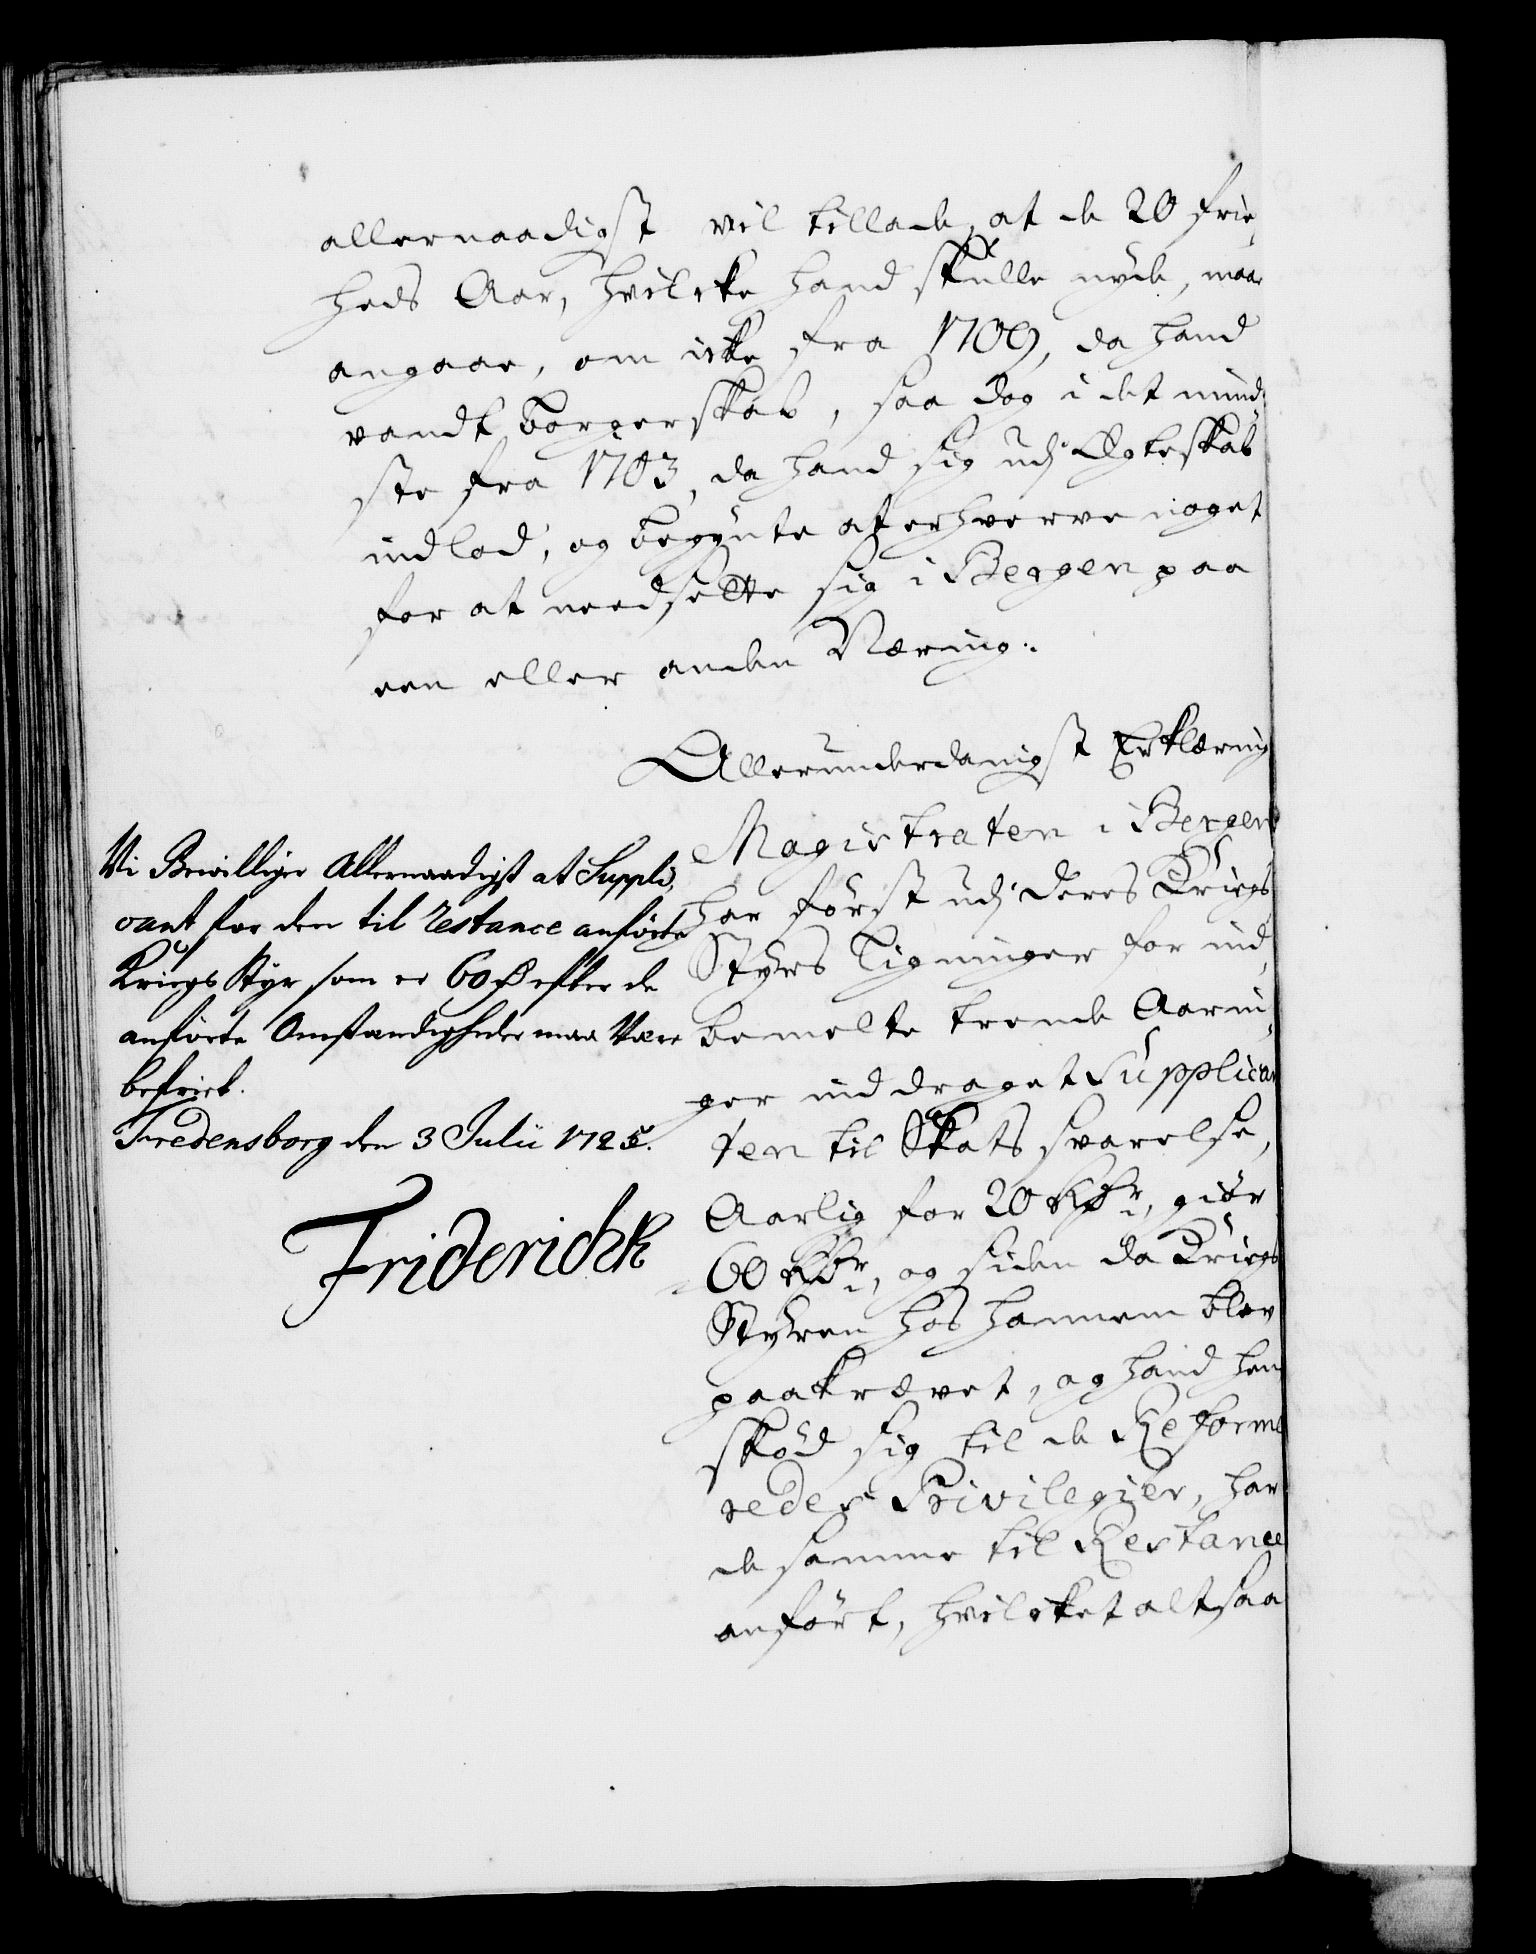 allernaadigst vil tillade, at de 20 frie,
heds Aar, hvilcke hand skulle nyde, maa
angaae, om icke fra 1709, da hand
vandt borgerskab, saa dog i det mind,
ste fra 1713, da hand sig udj Ægteskab
indlod, og begynte at erhverve noget
for at needsette sig i Bergen paa
een eller anden Næring.
Allerunderdanigst Erklæring
Magistraten i Bergen
har först udj deres Kriegs
Styrs Ligninger for ind,
bemelte trende Aarin,
ger inddraget Supplican
ten til Skats svarelse,
Aarlig for 20 Rdr, giör
60 Rdr, og siden da Kriegs
Styren hos hannem blev
paakrævet, og hand hen
sköd sig til de Reforme
redes Privilegier, har
de samme til Restance
anfört, hvilcket altsaa
Vi Bevilliger Allernaadigst at Suppli,
cant for den til Restance anförte
Kriegs Styr som er 60 Rd efter de
anförte Omstændigheder maa Være
befriet.
Fredensborg den 3 Julii 1725.
Friderich R